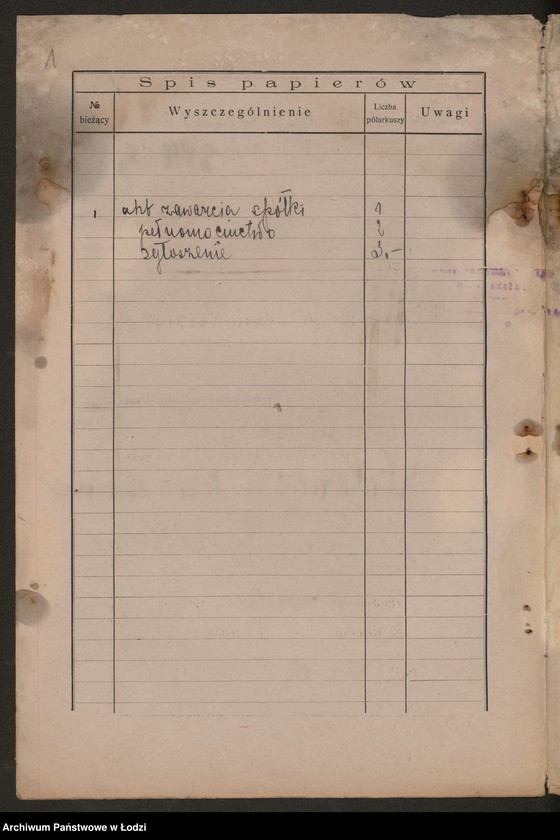 1
Spis papierów
№ bieżący
Wyszczególnienie
Liczba półarkuszy
Uwagi
1 akt zawarcia spółki 1
pełnomocnictwo 2
zgłoszenie 3.–
Archiwum Państwowe w Łodzi